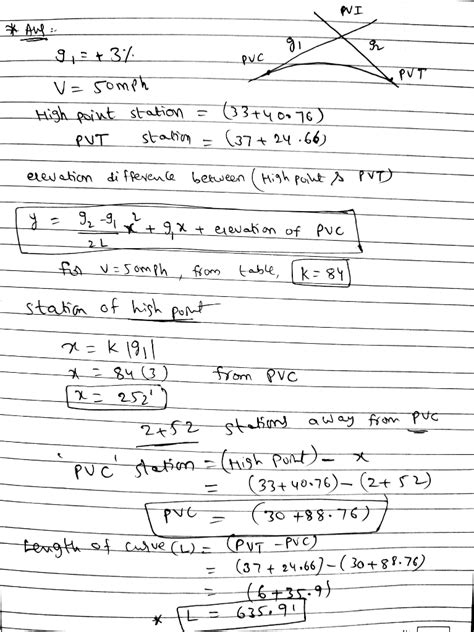 * Ans :-
PVI
g1 = +3%
PVC
g1
g2
PVT
V = 50mph
High point station = (33+40.76)
PVT station = (37+24.66)
elevation difference between (High point & PVT)
y = g2-g1/2L x² + g1x + elevation of PVC
for V=50mph, from table, K=84
station of high point
x = K|g1|
x = 84(3) from PVC
x = 252'
2+52 stations away from PVC
'PVC' station = (High Point) - x
= (33+40.76)-(2+52)
PVC = (30+88.76)
Length of curve (L) = (PVT-PVC)
= (37+24.66)-(30+88.76)
= (6+35.9)
* L = 635.9'